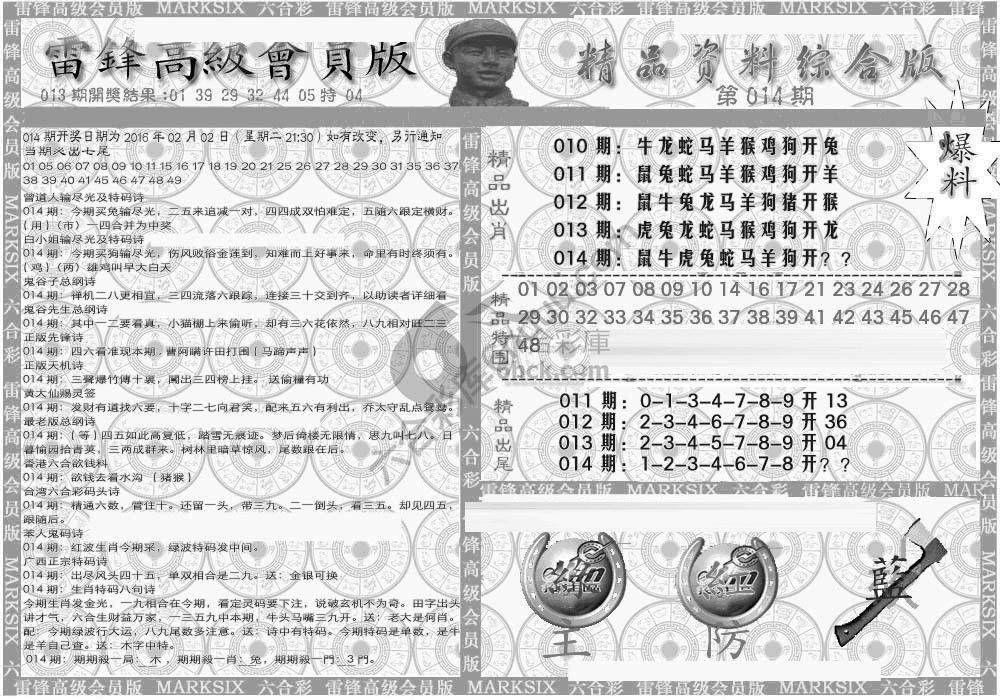 雷锋高级会员版 MARKSIX 六合彩 雷锋高级会员版 MARKSIX 六合彩 雷锋高级会员版 MARKSIX 六合彩
雷鋒高級會員版
精品资料综合版
013期開獎結果:01 39 29 32 44 05特 04
第014期
014期开奖日期为2016年02月02日（星期二21:30）如有改变，另行通知
当期必出七尾
01 05 06 07 08 09 10 11 15 16 17 18 19 20 21 25 26 27 28 29 30 31 35 36 37
38 39 40 41 45 46 47 48 49
曾道人输尽光及特码诗
014期：今期买兔输尽光，二五来追减一对，四四成双怕难定，五随六跟定横财。
{用}（市）一四合并为中奖
白小姐输尽光及特码诗
014期：今期买狗输尽光，伤风败俗金莲到，知难而上好事来，命里有时终须有。
{鸡}（两）雄鸡叫早大白天
鬼谷子总纲诗
014期：禅机二八更相宜，三四流落六跟踪，连接三十交到齐，以助读者详细看
鬼谷先生总纲诗
014期：其中一二要看真，小猫棚上来偷听，却有三六花依然，八九相对旺二三
正版先锋诗
014期：四六看准现本期．曹阿瞒许田打围{马蹄声声}
正版天机诗
014期：三聲爆竹傳十裏，圍出三四榜上挂。送偷糧有功
黄大仙赐灵签
014期：发财有道找六要，十字二七向君笑，配来五六有利出，乔太守乱点鸳鸯。
最老版总纲诗
014期：{等}四五如此高复低，踏雪无痕迹。梦后倚楼无限情，思九叫七八。日
暮愉园拾青荚，三两成群来。树林里暗草惊风，尾数跟在后。
香港六合欲钱料
014期：欲钱去看水沟 {猪猴}
台湾六合彩码头诗
014期：精通六数，管住十。还留一头，带三九。二一倒头，看三五。却见四五，
跟随后。
苯人鬼码诗
014期：红波生肖今期采，绿波特码发中间。
广西正宗特码诗
014期：出尽风头四十五，单双相合是二九。送：金银可换
014期：生肖特码八句诗
今期生肖发金光，一九相合在今期，看定灵码要下注，说破玄机不为奇。田字出头
讲才气，六合生财益万家，一三五九中本期，牛头马嘴三九开。送：老大是何肖。
配：今期绿波行大运，八九尾数多注意。送：诗中有特码。今期特码是单数，是牛
是羊自己查。送：木字中特。
014期：期期殺一局：木，期期殺一肖：兔，期期殺一門：3門。
精品出肖
010期：牛龙蛇马羊猴鸡狗开兔
011期：鼠兔蛇马羊猴鸡狗开羊
012期：鼠牛兔龙马羊狗猪开猴
013期：虎兔龙蛇马猴鸡狗开龙
014期：鼠牛虎兔蛇马羊狗开？？
爆料
精品特围
01 02 03 07 08 09 10 14 15 16 20 21 22 23 24 26 27 28
29 30 32 33 34 35 36 37 38 39 41 42 43 44 45 46 47
48
精品出尾
011期：0-1-3-4-7-8-9开13
012期：2-3-4-6-7-8-9开36
013期：2-3-4-5-7-8-9开04
014期：1-2-3-4-6-7-8开？？
雷锋高级会员版 MARKSIX 六合彩 雷锋高级会员版 MAR
主
防
藍
雷锋高级会员版 MARKSIX 六合彩 雷锋高级会员版 MARKSIX 六合彩 雷锋高级会员版 MARKSIX 六合彩